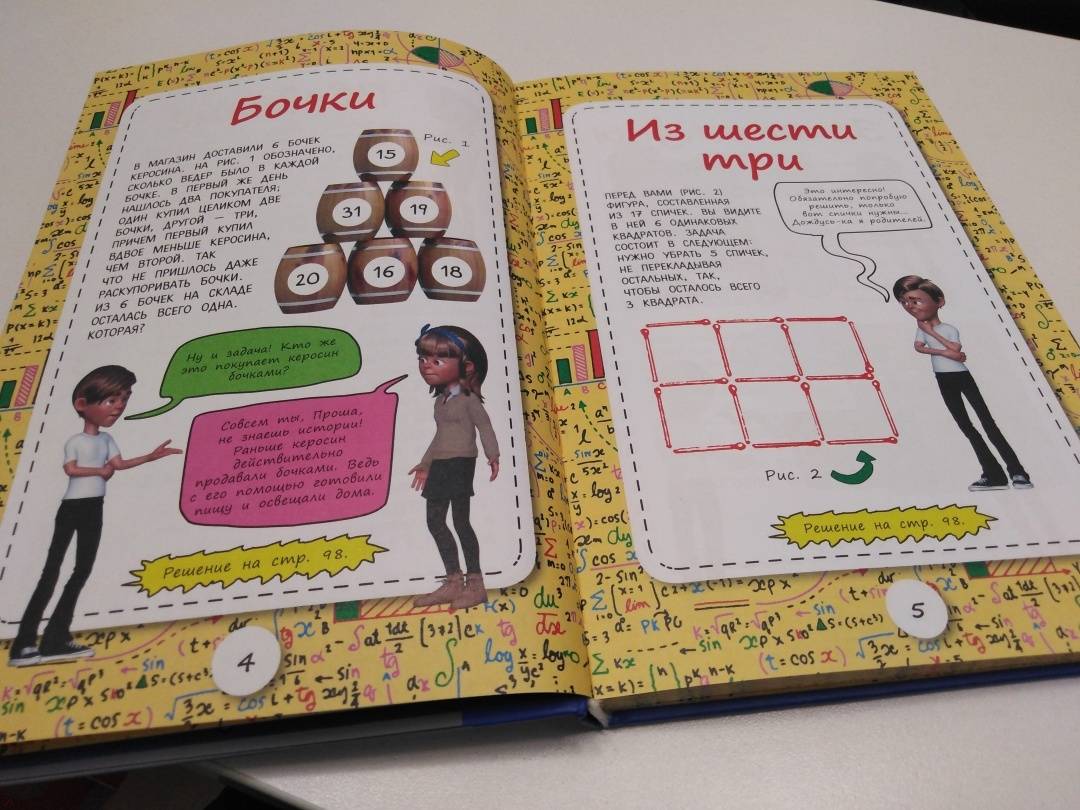 Бочки
В МАГАЗИН ДОСТАВИЛИ 6 БОЧЕК
КЕРОСИНА. НА РИС. 1 ОБОЗНАЧЕНО,
СКОЛЬКО ВЕДЕР БЫЛО В КАЖДОЙ
БОЧКЕ. В ПЕРВЫЙ ЖЕ ДЕНЬ
НАШЛОСЬ ДВА ПОКУПАТЕЛЯ;
ОДИН КУПИЛ ЦЕЛИКОМ ДВЕ
БОЧКИ, ДРУГОЙ — ТРИ,
ПРИЧЕМ ПЕРВЫЙ КУПИЛ
ВДВОЕ МЕНЬШЕ КЕРОСИНА,
ЧЕМ ВТОРОЙ. ТАК
ЧТО НЕ ПРИШЛОСЬ ДАЖЕ
РАСКУПОРИВАТЬ БОЧКИ.
ИЗ 6 БОЧЕК НА СКЛАДЕ
ОСТАЛАСЬ ВСЕГО ОДНА.
КОТОРАЯ?
Рис. 1
15
31 19
20 16 18
Ну и задача! Кто же
это покупает керосин
бочками?
Совсем ты, Проша,
не знаешь истории!
Раньше керосин
действительно
продавали бочками. Ведь
с его помощью готовили
пищу и освещали дома.
Решение на стр. 98.
4
Из шести
три
ПЕРЕД ВАМИ (РИС. 2)
ФИГУРА, СОСТАВЛЕННАЯ
ИЗ 17 СПИЧЕК. ВЫ ВИДИТЕ
В НЕЙ 6 ОДИНАКОВЫХ
КВАДРАТОВ. ЗАДАЧА
СОСТОИТ В СЛЕДУЮЩЕМ:
НУЖНО УБРАТЬ 5 СПИЧЕК,
НЕ ПЕРЕКЛАДЫВАЯ
ОСТАЛЬНЫХ, ТАК,
ЧТОБЫ ОСТАЛОСЬ ВСЕГО
3 КВАДРАТА.
Это интересно!
Обязательно попробую
решить, только
вот спички нужны...
Дождусь-ка я родителей.
Рис. 2
Решение на стр. 98.
5